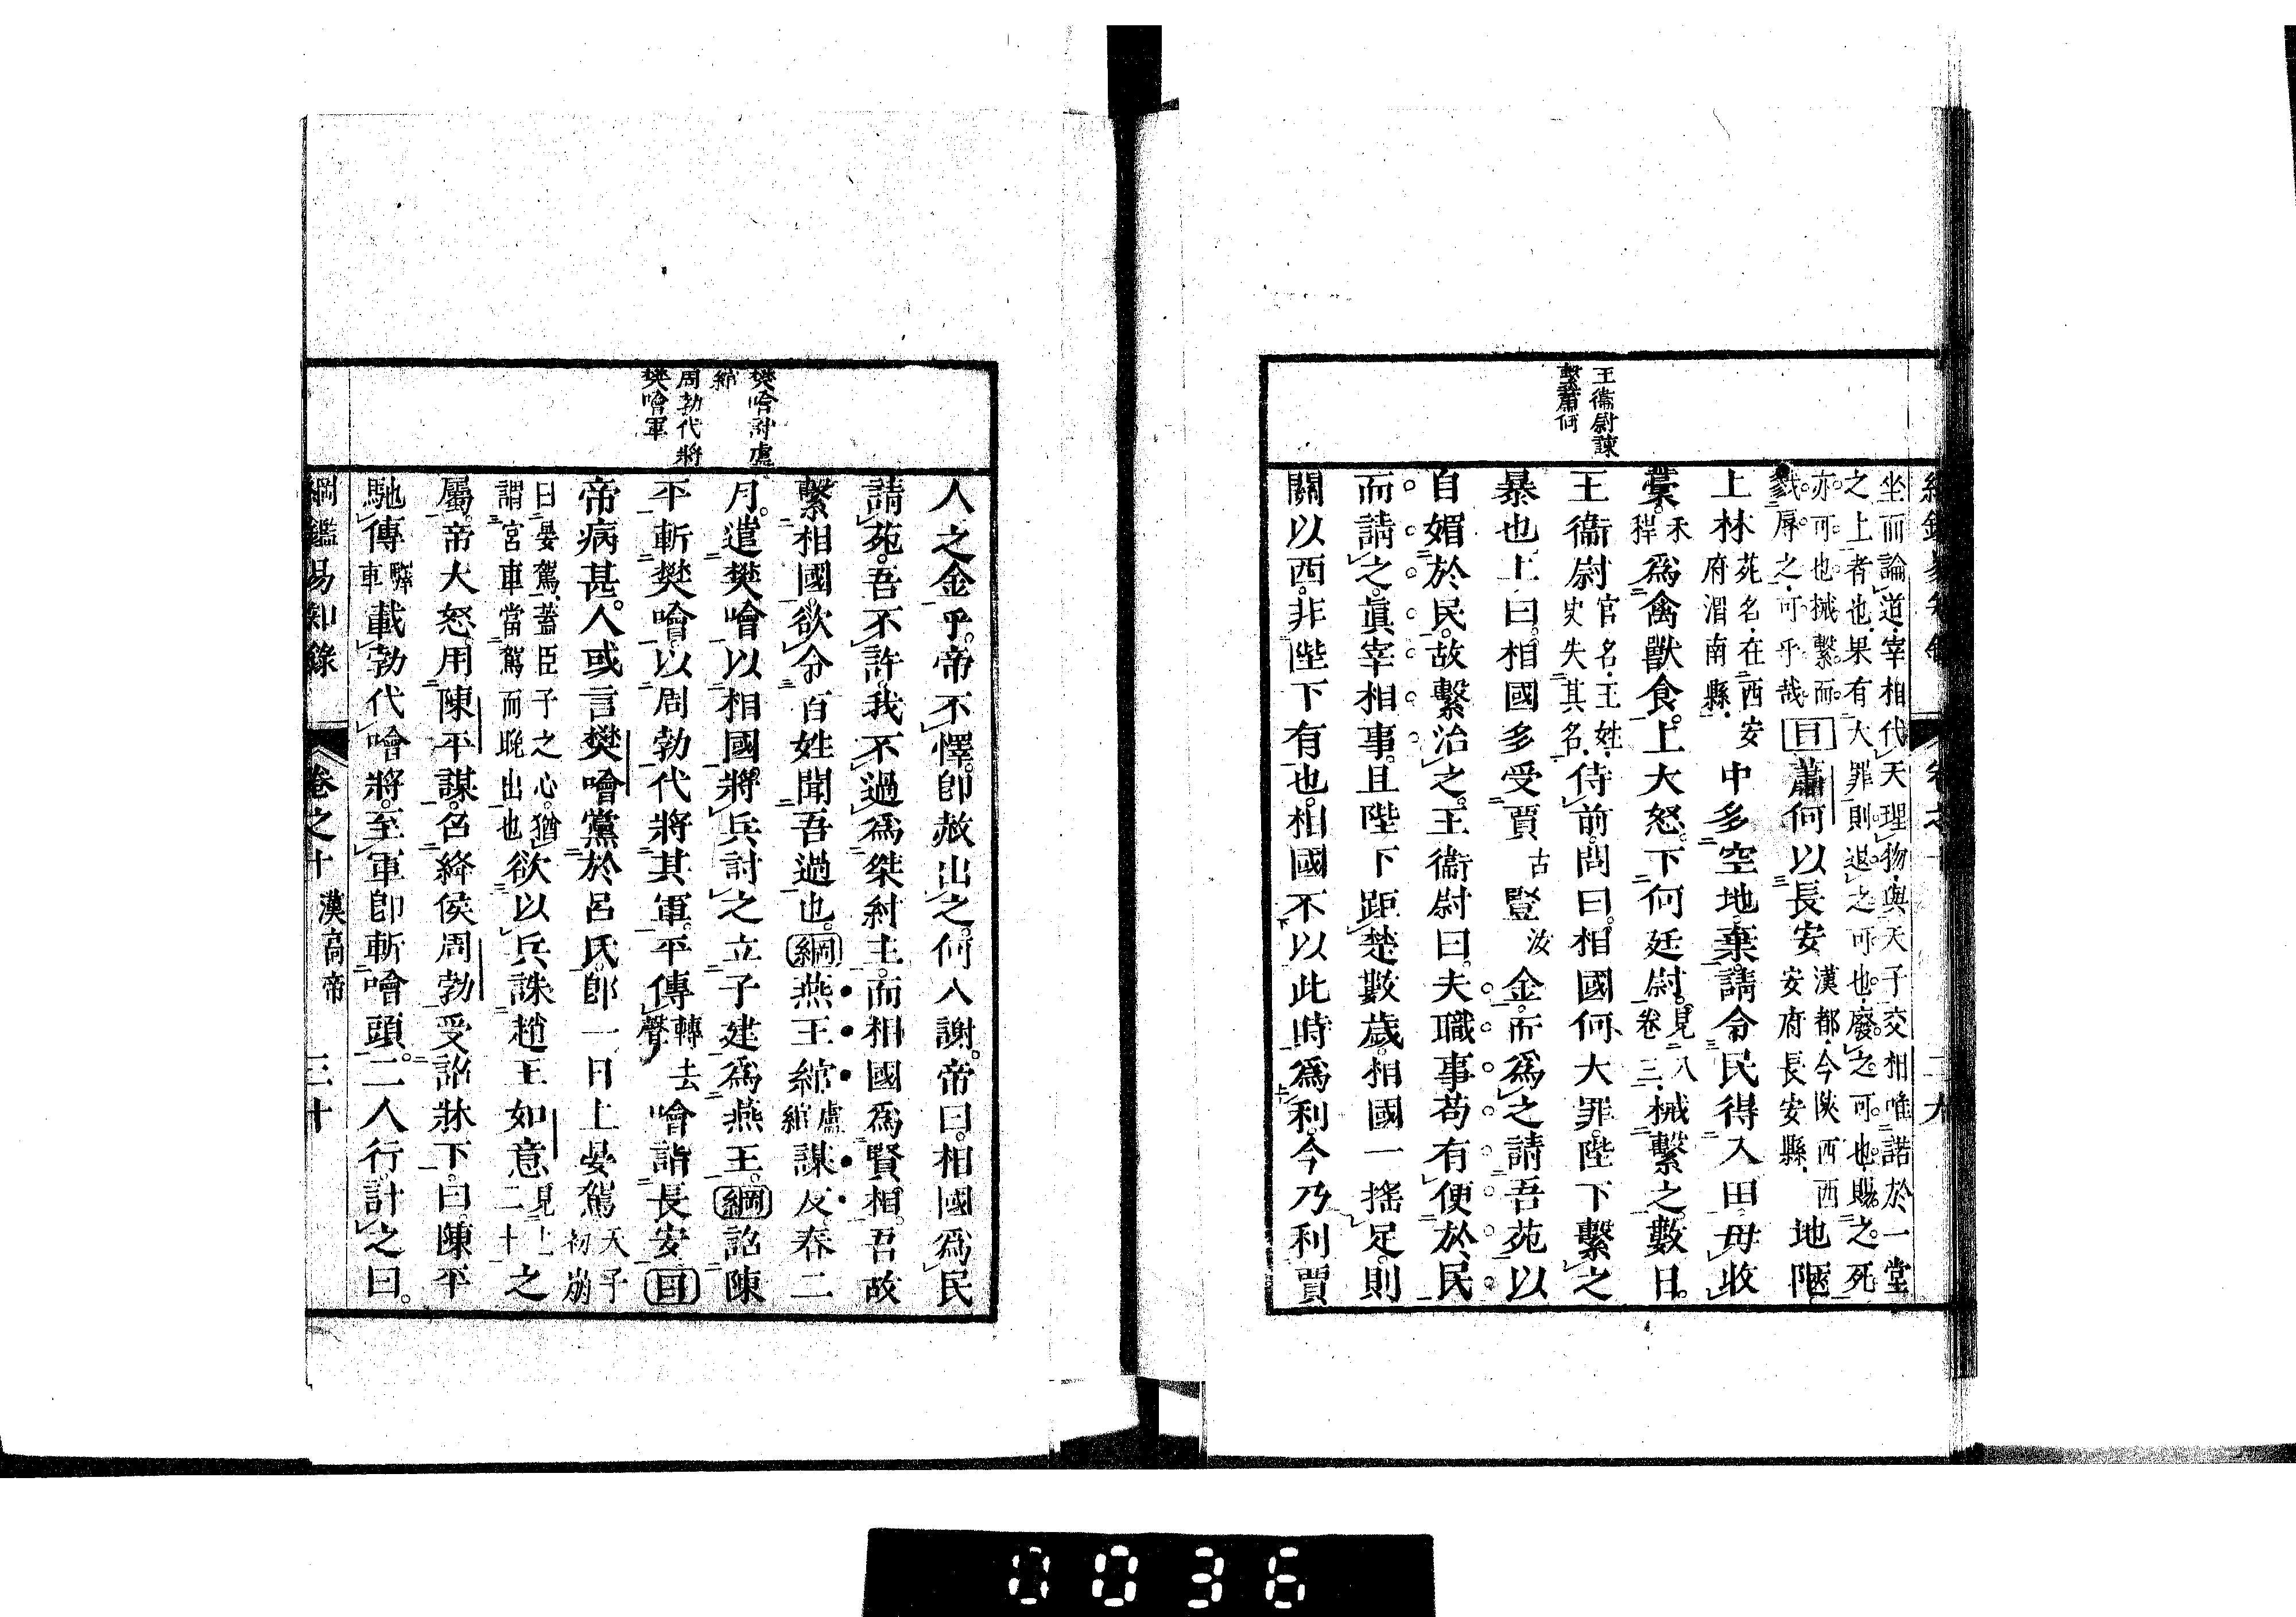 王衞尉諫
繫蕭何
坐而論道宰相代天理物與天子交相唯諾於一堂
之上者也果有大罪則退之可也廢之可也賜之死
亦可也械繫而
戮辱之可乎哉
目蕭何以長安
漢都今陝西西
安府長安縣
地陿
上林
苑名在西安
府渭南縣
中多空地棄請令民得入田毋收
藁
禾
稈
爲禽獸食上大怒下何廷尉
見八
卷三
械繫之數日
王衞尉
官名王姓
史失其名
侍前問曰相國何大罪陛下繫之
暴也上曰相國多受賈
古
豎
汝
金而爲之請吾苑以
自媚於民故繫治之王衞尉曰夫職事苟有便於民
而請之眞宰相事且陛下距楚數歲相國一搖足則
關以西非陛下有也相國不以此時爲利今乃利賈
樊噲討盧
綰
周勃代將
樊噲軍
人之金乎帝不懌卽赦出之何入謝帝曰相國爲民
請苑吾不許我不過爲桀紂主而相國爲賢相吾故
繫相國欲令百姓聞吾過也綱燕王綰
盧
綰
謀反春二
月遣樊噲以相國將兵討之立子建爲燕王綱詔陳
平斬樊噲以周勃代將其軍平傳
轉去
聲
噲詣長安目
帝病甚人或言樊噲黨於呂氏卽一日上晏駕
天子
初崩
曰晏駕蓋臣子之心猶
謂宮車當駕而晚出也
欲以兵誅趙王如意
見上
二十
之
屬帝大怒用陳平謀召絳侯周勃受詔牀下曰陳平
馳傳
驛
車
載勃代噲將至軍卽斬噲頭二人行計之曰
綱鑑易知錄 卷之十 漢高帝 三十
0036